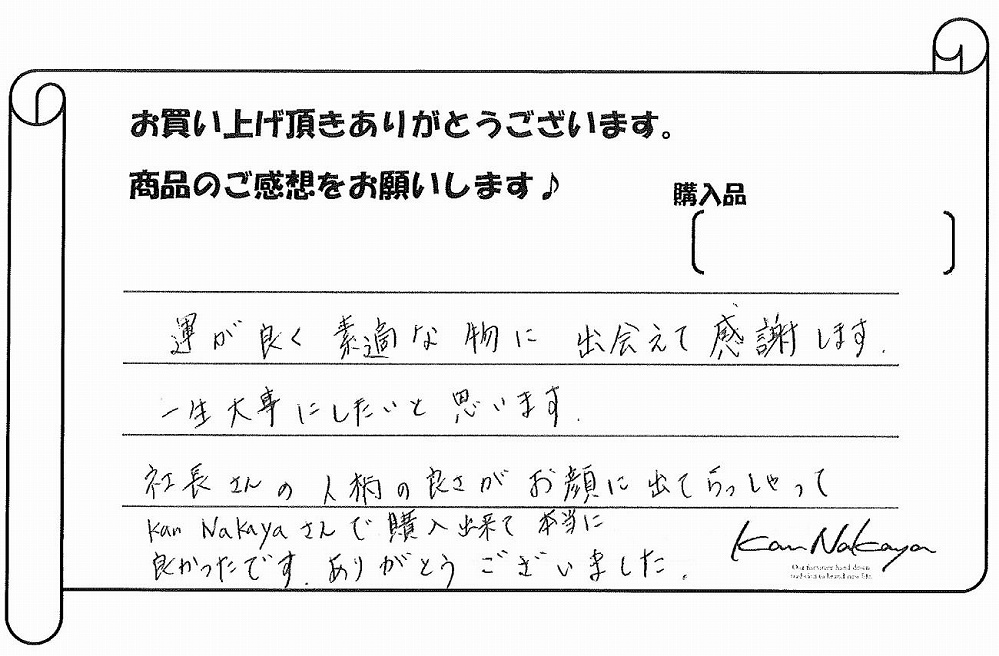 お買い上げ頂きありがとうございます。
商品のご感想をお願いします♪
購入品
運が良く 素適な物に 出会えて感謝します.
一生大事にしたいと思います.
社長さんの人柄の良さがお顔に出てらっしゃって
Kan Nakayaさんで購入出来て本当に
良かったです. ありがとうございました.
Kan Nakaya